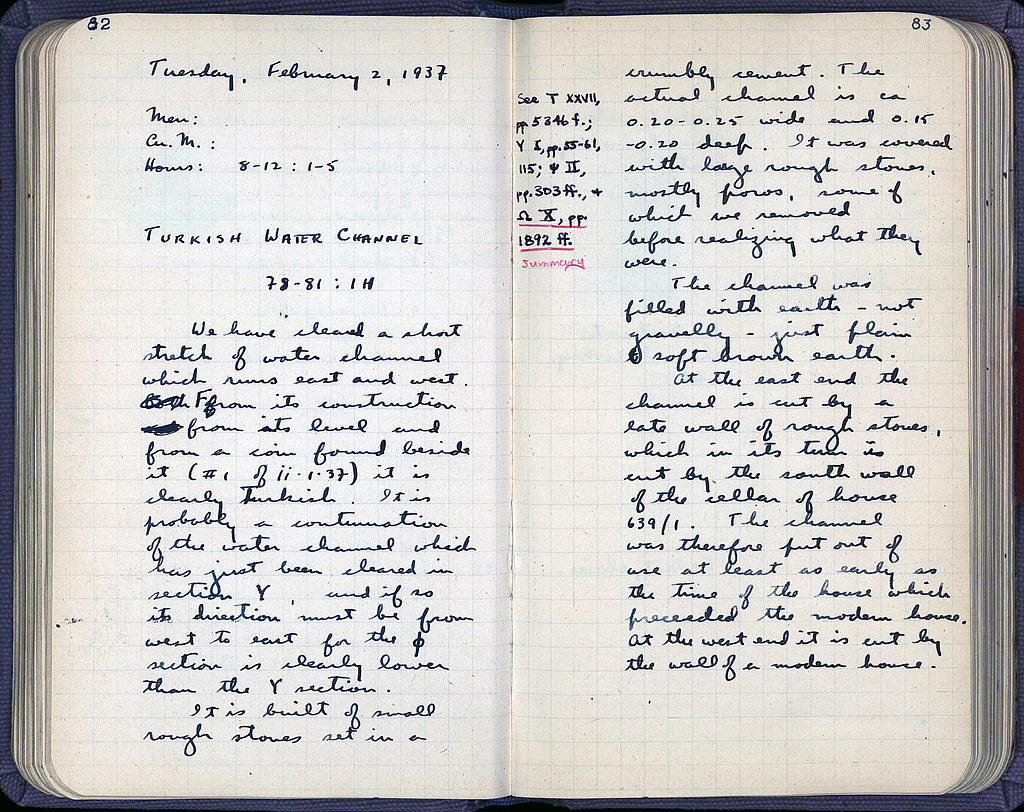 82
Tuesday, February 2, 1937
Men:
Cu. M. :
Hours: 8-12 : 1-5
TURKISH WATER CHANNEL
78-81 : IH
We have cleared a short
stretch of water channel
which runs east and west.
Both From its construction
from its level and
from a coin found beside
it (#1 of ii-1-37) it is
clearly Turkish. It is
probably a continuation
of the water channel which
has just been cleared in
section Y, and if so
its direction must be from
west to east for the φ
section is clearly lower
than the Y section.
It is built of small
rough stones set in a
83
See T XXVII,
pp 5346 f.;
Y X, pp. 55-61,
115; Ψ II,
pp. 303 ff., +
Ω X, pp.
1892 ff.
summary
crumbly cement. The
actual channel is ca
0.20-0.25 wide and 0.15
-0.20 deep. It was covered
with large rough stones,
mostly poros, some of
which we removed
before realizing what they
were.
The channel was
filled with earth - not
gravelly - just plain
soft brown earth.
At the east end the
channel is cut by a
late wall of rough stones,
which in its turn is
cut by the south wall
of the cellar of house
639/1. The channel
was therefore put out of
use at least as early as
the time of the house which
preceeded the modern house.
At the west end it is cut by
the wall of a modern house.